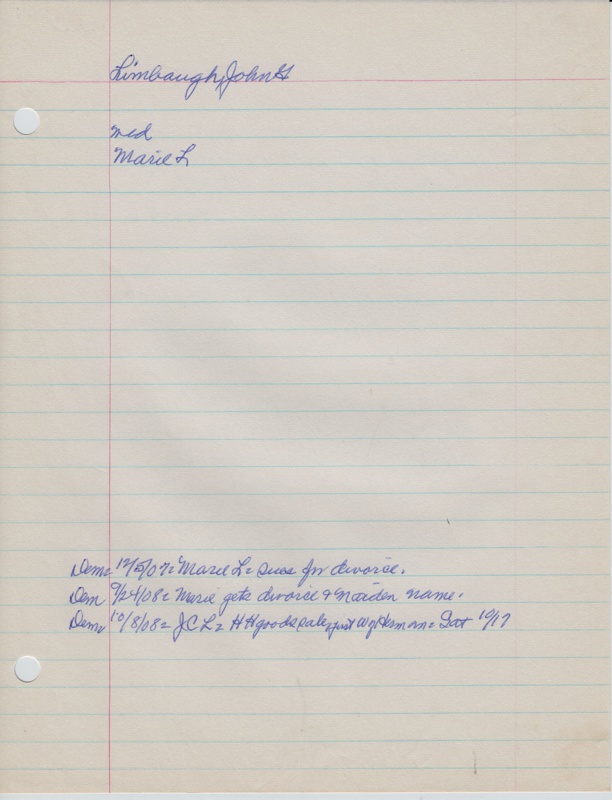 Limbaugh, John G
med
Marie L
Dem= 12/5/07= Marie L= sues for divorce.
Dem 9/24/08= Marie gets divorce & Maiden name.
Dem= 10/8/08= J C L= H H goods sale, just W of Herman= Sat 10/17